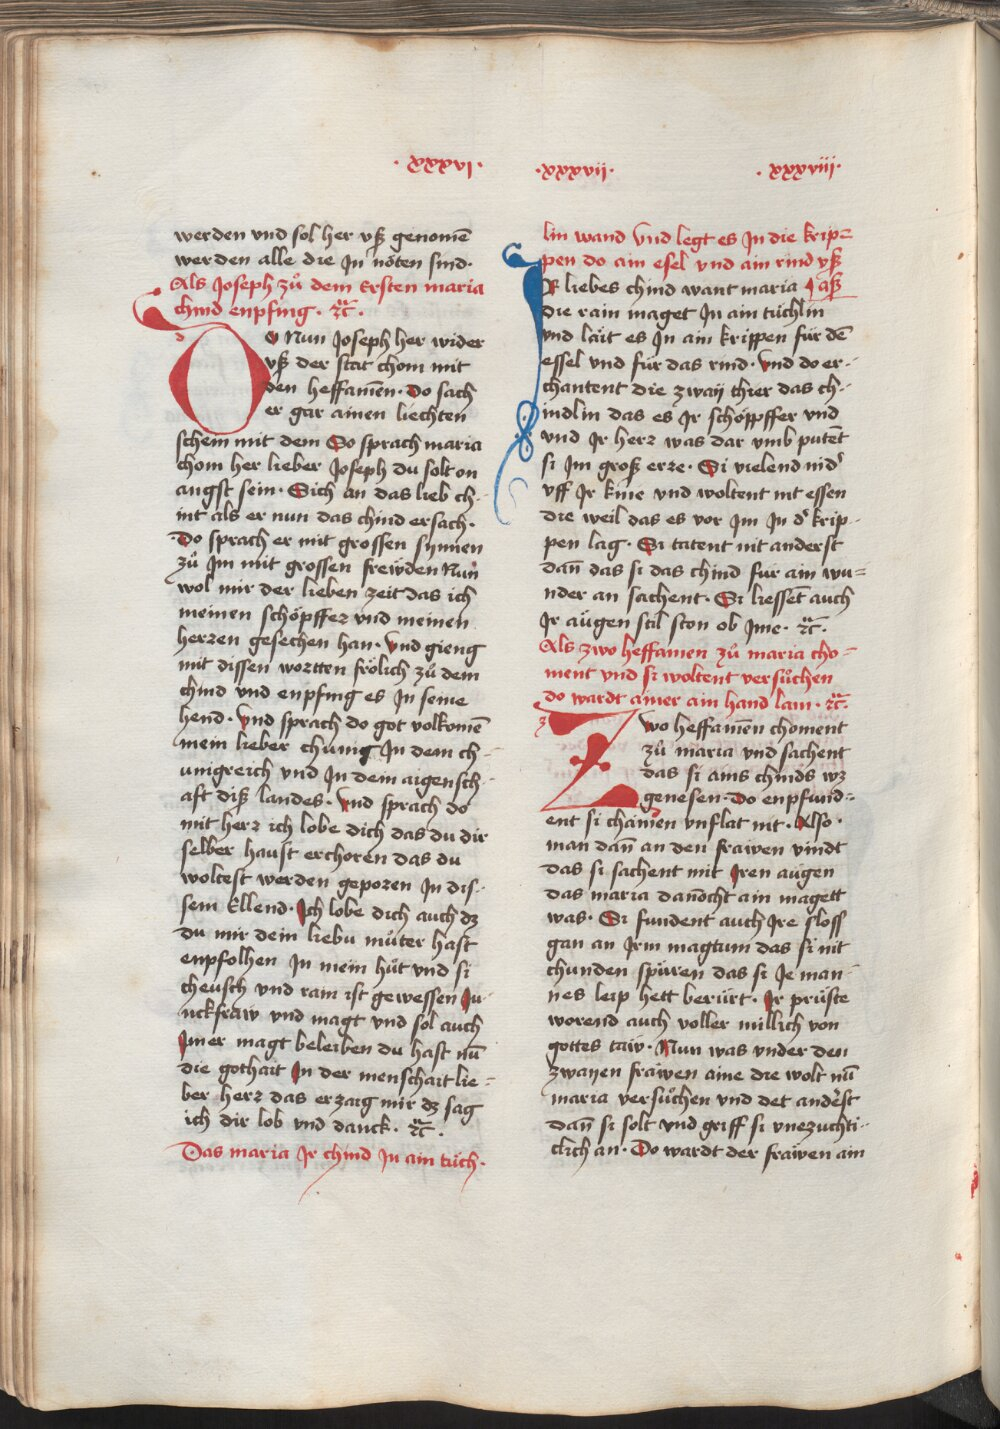 · xxxvi ·
· xxxvii ·
· xxxviii ·
werden vnd sol her vß genomē
werden alle die Jn nöten sind ·
Als Joseph zů dem Ersten maria
chind enpfing · ꝛc̄ ·
O Nun Joseph her wider
vß der stat chom mit
den heffamēn · Do sach
er gar ainen liechten
schein mit dem So sprach maria
chom her lieber Joseph du solt on
angst sein · Sich an das lieb ch-
int als er nun das chind ersach ·
Do sprach er mit grossen synnen
zů Jm mit grossen freẅden Nun
wol mir der lieben zeit das ich
meinen schöpffer vnd meinen
herzen gesechen han · vnd gieng
mit dissen wortten frölich zů dem
chind vnd enpfing es Jn seine
hend · vnd sprach do got volkomē
mein lieber chunig Jn dem ch-
unigreich vnd Jn dem aigensch-
aft diß landes · vnd sprach do
mit herz ich lobe dich das du dir
selber haust erchoren das du
woltest werden geporen Jn dis-
sem Ellend · Ich lobe dich auch dz
du mir dein liebu můter hast
enpfolhen Jn mein hůt vnd si
cheusch vnd rain ist gewessen Ju
nckfraw vnd magt vnd sol auch
Jmer magt beleiben du hast nū
die gothait Jn der menschait lie-
ber herz das erzaig mir dz sag
ich dir lob vnd danck · ꝛc̄ ·
Das maria Jr chind Jn ain tüch-
lin wand vnd legt es Jn die krip=
pen do ain esel vnd ain rind vß
R liebes chind want maria aß
die rain maget Jn ain tüchlin
vnd läit es Jn ain krippen für dē
essel vnd für das rind · vnd do er-
chantent die zwaÿ thier das ch-
indlin das es Jr schöpffer vnd
vnd Jr herz was dar vmb putēt
si Jm groß erze · Si vielend nid'
vff Jr knie vnd woltent nit essen
die weil das es vor Jm Jn d' krip-
pen lag · Si tatent nit anderst
dan̄ das si das chind für ain wu=
nder an sachent · Si liessēt auch
Jr aůgen stil ston ob Jme · ꝛc̄ ·
Als zwo heffamen zů maria cho-
ment vnd si woltent versůchen
do wardt ainer ain hand lam · ꝛc̄ ·
Zwo heffamēn choment
zů maria vnd sachent
das si ains chinds wz
genesen · Do enpfund-
ent si chainen vnflat nit · Also ·
man dan̄ an den frawen vindt
das si sachent mit Jren augen
das maria dan̄ocht ain magett
was · Si fundent auch Jre sloss
gan an Jrm magtum das si nit
chunden spüren das si Je man-
nes leip hett berürt · Jr prüste
worend auch voller millich von
gottes taw · Nun was vnder den
zwaÿen frawen aine die wolt nū
maria versůchen vnd det anderst
dan̄ si solt vnd griff si vnezuchti-
clich an · Do wardt der frawen ain